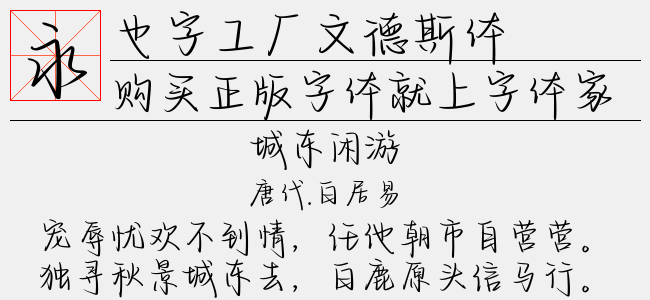 永
也字工厂文德斯体
购买正版字体就上字体家
城东闲游
唐代.白居易
宠辱忧欢不到情，任他朝市自营营。
独寻秋景城东去，白鹿原头信马行。